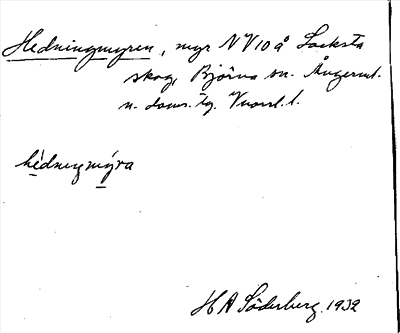 Hedningmyren, myr NV10 å Locksta
skog, Björna sn. Ångerml.
n. doms. tg. Vnorrl. l.
hèdnıŋmýra
H A Söderberg. 1932